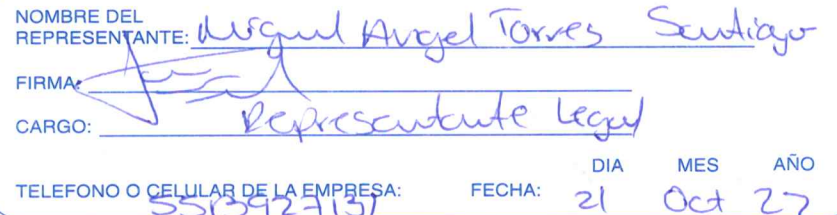 NOMBRE DEL
REPRESENTANTE: Miguel Angel Torres Santiago
FIRMA:
CARGO: Representante Legal
DIA MES AÑO
TELEFONO O CELULAR DE LA EMPRESA: 5513927131 FECHA: 21 Oct 22